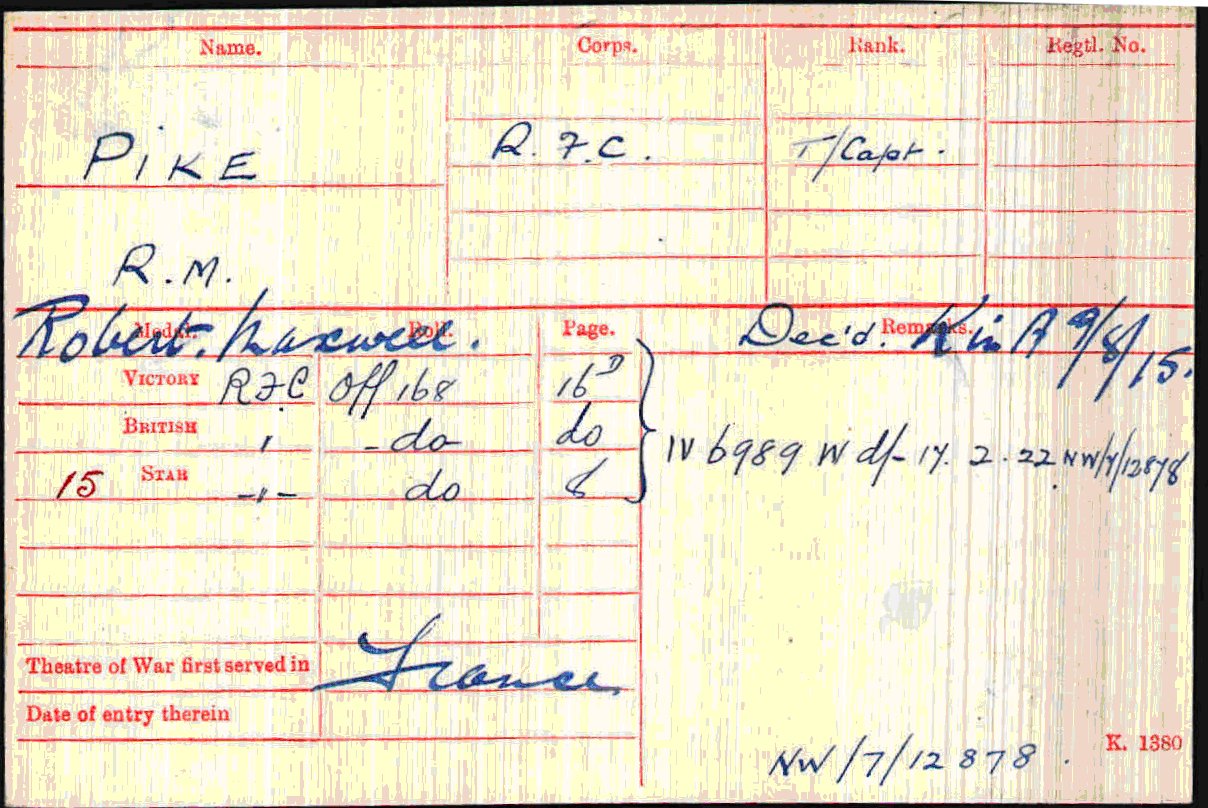 Name. Corps. Rank. Regtl. No.
PIKE R.F.C. T/Capt.
R.M.
Robert. Maxwell.
Medal. Roll. Page. Remarks.
Dec'd. K in A 9/8/15.
VICTORY RFC Off 168 16D
BRITISH " -do- do
15 STAR -"- do 8
IV 6989 W d/- 17. 2. 22 NW/7/12878
Theatre of War first served in France
Date of entry therein
K. 1380
NW/7/12878.